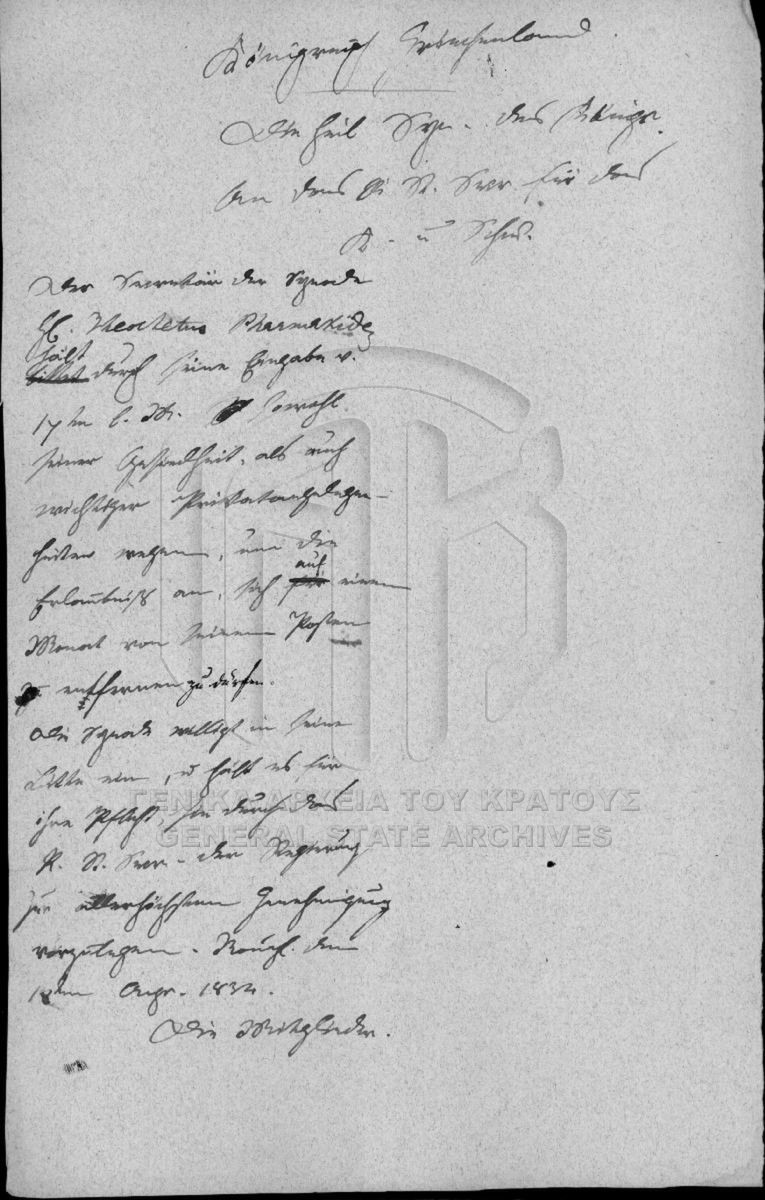 Königreich Griechenland
Die heil. Syn. des Königr.
An das St. Secr. für das
K. u. Schw.
Der Secretär der Synode
H. Theocletus Pharmakides
hält durch seine Eingabe v.
17ten l. M. sowohl
seiner Gesundheit, als auch
wichtiger Privatangelegen-
heiten wegen, um die
Erlaubniß an, sich auf einen
Monat von seinem Posten
entfernen zu dürfen.
Die Synode willigt in seine
Bitte ein, u hält es für
ihre Pflicht, sie durch das
K. St. Secr. der Regierung
zur allerhöchsten Genehmigung
vorzulegen. Naupl. den
Apr. 1834.
Die Mitglieder.
ΓΕΝΙΚΑ ΑΡΧΕΙΑ ΤΟΥ ΚΡΑΤΟΥΣ
GENERAL STATE ARCHIVES